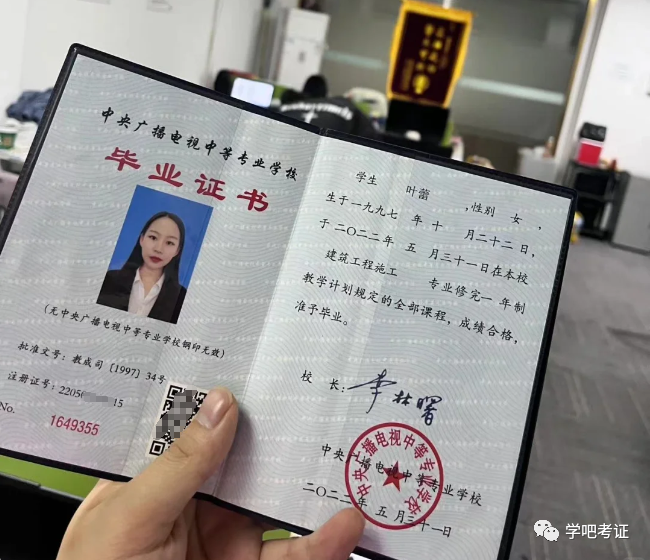 中央广播电视中等专业学校
毕业证书
(无中央广播电视中等专业学校钢印无效)
批准文号：教成司［1997］34号
注册证号：2205 15
No. 1649355
学生 叶蕾 ,性别 女 ,
生于一九九七 年 十 月二十二日,
于二〇二二年 五 月三十一日在本校
建筑工程施工 专业修完一 年制
教学计划规定的全部课程，成绩合格，
准予毕业。
校 长：李林曙
中央广播电视中等专业学校
中央广播电视中等专业学校
二〇二二年 五 月三十一日
学吧考证